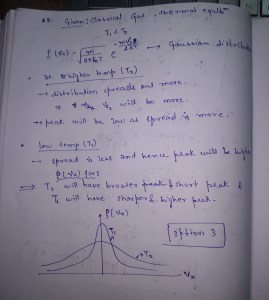 Given: Classical Gas, thermal equlbm
T₁ < T₂
f(vₓ) = √(m/2πkT) e^(-mvₓ²/2kT) → Gaussian distributi
• at higher temp (T₂)
→ distribution spreads out more.
v₂ will be more.
→ peak will be low as spread is more.
• low temp (T₁)
→ spread is less and hence peak will be highe
⇒ T₂ will have broader peak & short peak &
T₁ will have sharper & higher peak.
f(vₓ)
T₁
T₂
vₓ
option 3